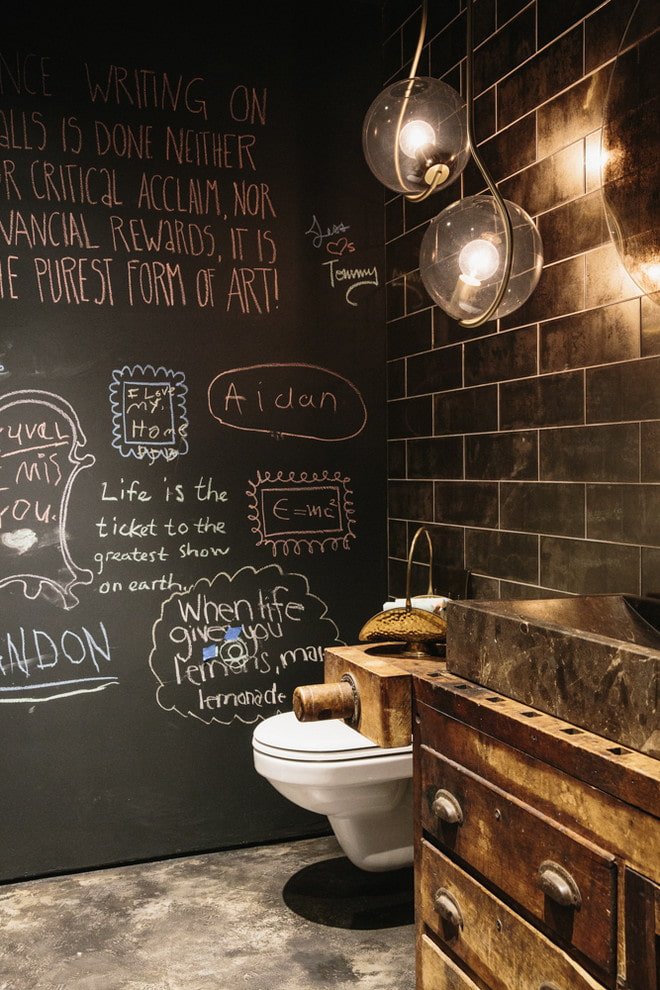 NCE WRITING ON
ALLS IS DONE NEITHER
R CRITICAL ACCLAIM, NOR
NANCIAL REWARDS, IT IS
E PUREST FORM OF ART!
Jess
s
Tommy
I Love
my
Home
Aidan
uval
mis
you.
Life is the
ticket to the
greatest show
on earth.
E=mc²
When life
give you
lemons, mak
lemonade
ANDON